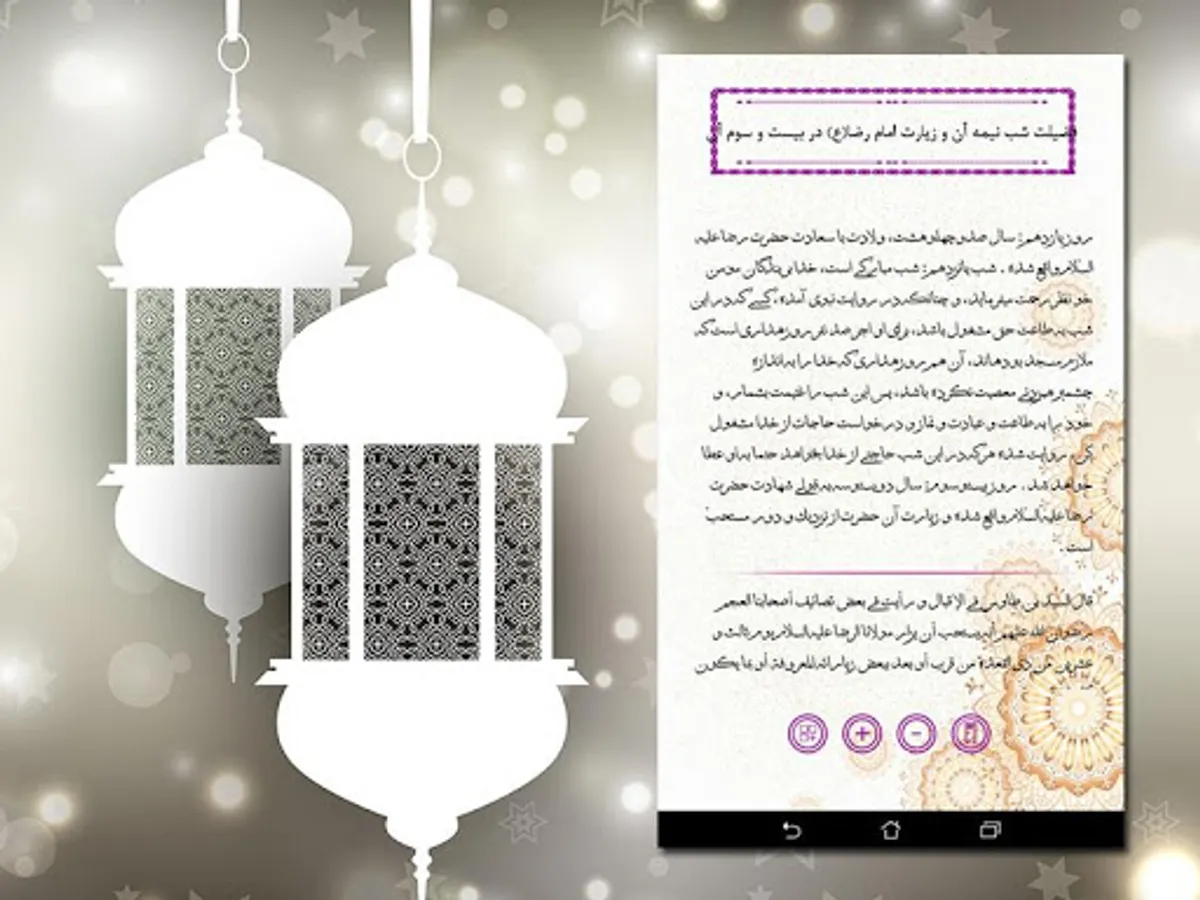 فضیلت شب نیمه آن و زیارت امام رضا(ع) در بیست و سوم آن
روز یازدهم: سال صد و چهل و هشت، ولادت با سعادت حضرت رضا علیه
السلام واقع شده . شب پانزدهم: شب مبارکی است، خدا بر بندگان مومن
خود نظر رحمت میفرماید، و چنانکه در روایت نبوی آمده، کسی که در این
شب به طاعت حق مشغول باشد، برای او اجر صد نفر روزهداری است که
ملازم مسجد بودهاند، آن هم روزهداری که خدا را به اندازه
چشم برهم زدنی معصیت نکرده باشد، پس این شب را غنیمت بشمار، و
خود را به طاعت و عبادت و نماز و درخواست حاجات از خدا مشغول
کن، روایت شده هرکه در این شب حاجتی از خدا بخواهد حتما به او عطا
خواهد شد . روز بیست و سوم: سال دویست و سه به قولی شهادت حضرت
رضا علیه السلام واقع شده و زیارت آن حضرت از نزدیک و دور مستحب
است .
قال السید بن طاوس فی الإقبال و رأیت فی بعض تصانیف أصحابنا العجم
رضوان الله علیهم أنه یستحب أن یزار مولانا الرضا علیه السلام یوم ثالث و
عشرین من ذی القعدة من قرب أو بعد ببعض زیاراته المعروفة أو بما یکون